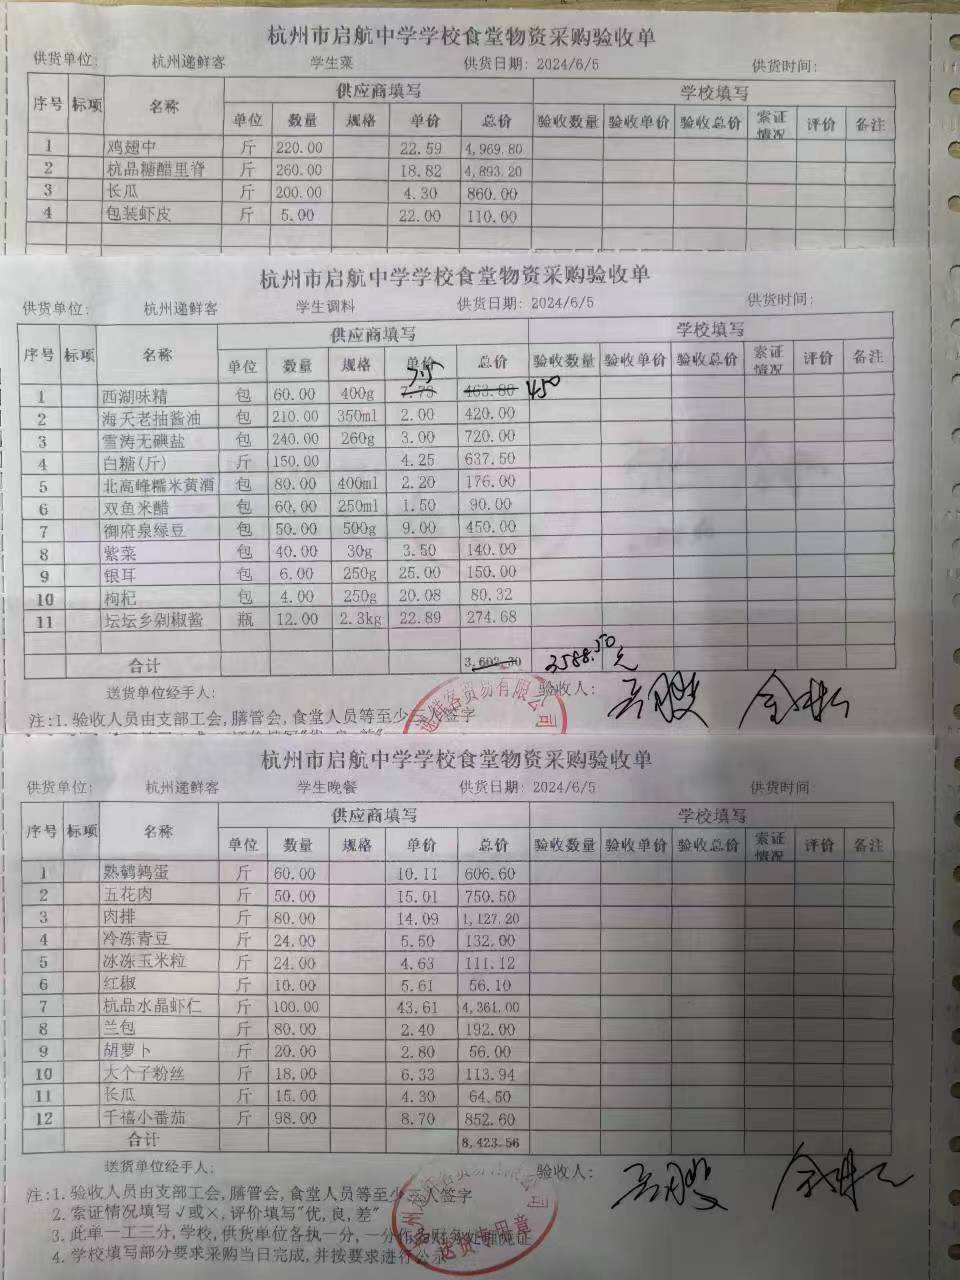 杭州市启航中学学校食堂物资采购验收单
供货单位: 杭州递鲜客 学生菜 供货日期: 2024/6/5 供货时间:
序号 标项 名称 供应商填写 学校填写
单位 数量 规格 单价 总价 验收数量 验收单价 验收总价 索证情况 评价 备注
1 鸡翅中 斤 220.00 22.59 4,969.80
2 杭品糖醋里脊 斤 260.00 18.82 4,893.20
3 长瓜 斤 200.00 4.30 860.00
4 包装虾皮 斤 5.00 22.00 110.00
杭州市启航中学学校食堂物资采购验收单
供货单位: 杭州递鲜客 学生调料 供货日期: 2024/6/5 供货时间:
序号 标项 名称 供应商填写 学校填写
单位 数量 规格 单价 总价 验收数量 验收单价 验收总价 索证情况 评价 备注
7.5
1 西湖味精 包 60.00 400g 7.73 463.80 450
2 海天老抽酱油 包 210.00 350ml 2.00 420.00
3 雪涛无碘盐 包 240.00 260g 3.00 720.00
4 白糖(斤) 斤 150.00 4.25 637.50
5 北高峰糯米黄酒 包 80.00 400ml 2.20 176.00
6 双鱼米醋 包 60.00 250ml 1.50 90.00
7 御府泉绿豆 包 50.00 500g 9.00 450.00
8 紫菜 包 40.00 30g 3.50 140.00
9 银耳 包 6.00 250g 25.00 150.00
10 枸杞 包 4.00 250g 20.08 80.32
11 坛坛乡剁椒酱 瓶 12.00 2.3kg 22.89 274.68
合计 3,602.30 3588.50元
送货单位经手人: 验收人:
注:1. 验收人员由支部工会,膳管会,食堂人员等至少三人签字
递鲜客贸易有限公司
杭州市启航中学学校食堂物资采购验收单
供货单位: 杭州递鲜客 学生晚餐 供货日期: 2024/6/5 供货时间:
序号 标项 名称 供应商填写 学校填写
单位 数量 规格 单价 总价 验收数量 验收单价 验收总价 索证情况 评价 备注
1 熟鹌鹑蛋 斤 60.00 10.11 606.60
2 五花肉 斤 50.00 15.01 750.50
3 肉排 斤 80.00 14.09 1,127.20
4 冷冻青豆 斤 24.00 5.50 132.00
5 冰冻玉米粒 斤 24.00 4.63 111.12
6 红椒 斤 10.00 5.61 56.10
7 杭品水晶虾仁 斤 100.00 43.61 4,361.00
8 兰包 斤 80.00 2.40 192.00
9 胡萝卜 斤 20.00 2.80 56.00
10 大个子粉丝 斤 18.00 6.33 113.94
11 长瓜 斤 15.00 4.30 64.50
12 千禧小番茄 斤 98.00 8.70 852.60
合计 8,423.56
送货单位经手人: 验收人:
注:1. 验收人员由支部工会,膳管会,食堂人员等至少三人签字
2. 索证情况填写√或×,评价填写"优,良,差"
3. 此单一工三分,学校,供货单位各执一分,一分作为财务处理凭证
4. 学校填写部分要求采购当日完成,并按要求进行公示
送货专用章